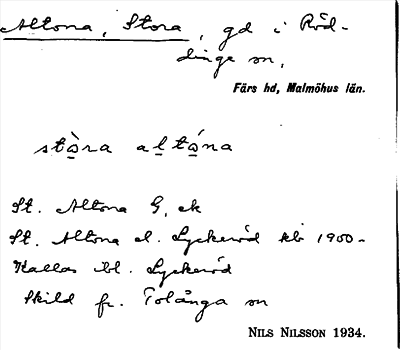 Altona, Stora, gd i Röd-
dinge sn,
Färs hd, Malmöhus län.
stò̱ra aḻtó̱na
St. Altona G, ek
St. Altona el. Lyckeröd kb 1900-
Kallas bl. Lyckeröd
Skild fr. Tolånga sn
NILS NILSSON 1934.